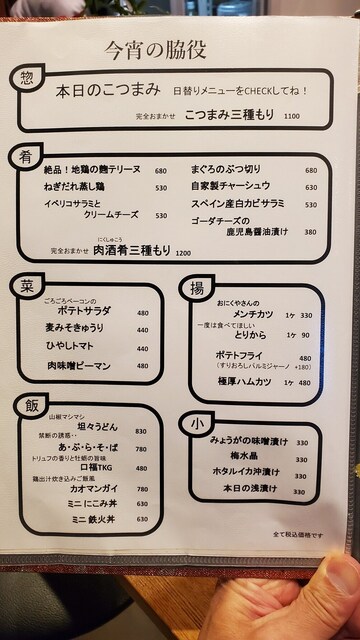 今宵の脇役
惣
本日のこつまみ 日替りメニューをCHECKしてね！
完全おまかせ こつまみ三種もり 1100
肴
絶品！地鶏の麹テリーヌ 680
ねぎだれ蒸し鶏 530
イベリコサラミと
クリームチーズ 530
まぐろのぶつ切り 680
自家製チャーシュウ 630
スペイン産白カビサラミ 530
ゴーダチーズの
鹿児島醤油漬け 380
にくしゅこう
完全おまかせ 肉酒肴三種もり 1200
菜
ごろごろベーコンの
ポテサラダ 480
麦みそきゅうり 440
ひやしトマト 440
肉味噌ピーマン 480
揚
おにくやさんの
メンチカツ 1ケ 330
一度は食べてほしい
とりから 1ケ 90
ポテトフライ 480
(すりおろしパルミジャーノ +180)
極厚ハムカツ 1ケ 480
飯
山椒マシマシ
坦々うどん 830
禁断の誘惑・・
あ・ぶ・ら・そ・ば 780
トリュフの香りと牡蛎の旨味
口福TKG 480
鶏出汁炊き込みご飯風
カオマンガイ 780
ミニ にこみ丼 630
ミニ 鉄火丼 630
小
みょうがの味噌漬け 330
梅水晶 330
ホタルイカ沖漬け 330
本日の浅漬け 330
全て税込価格です